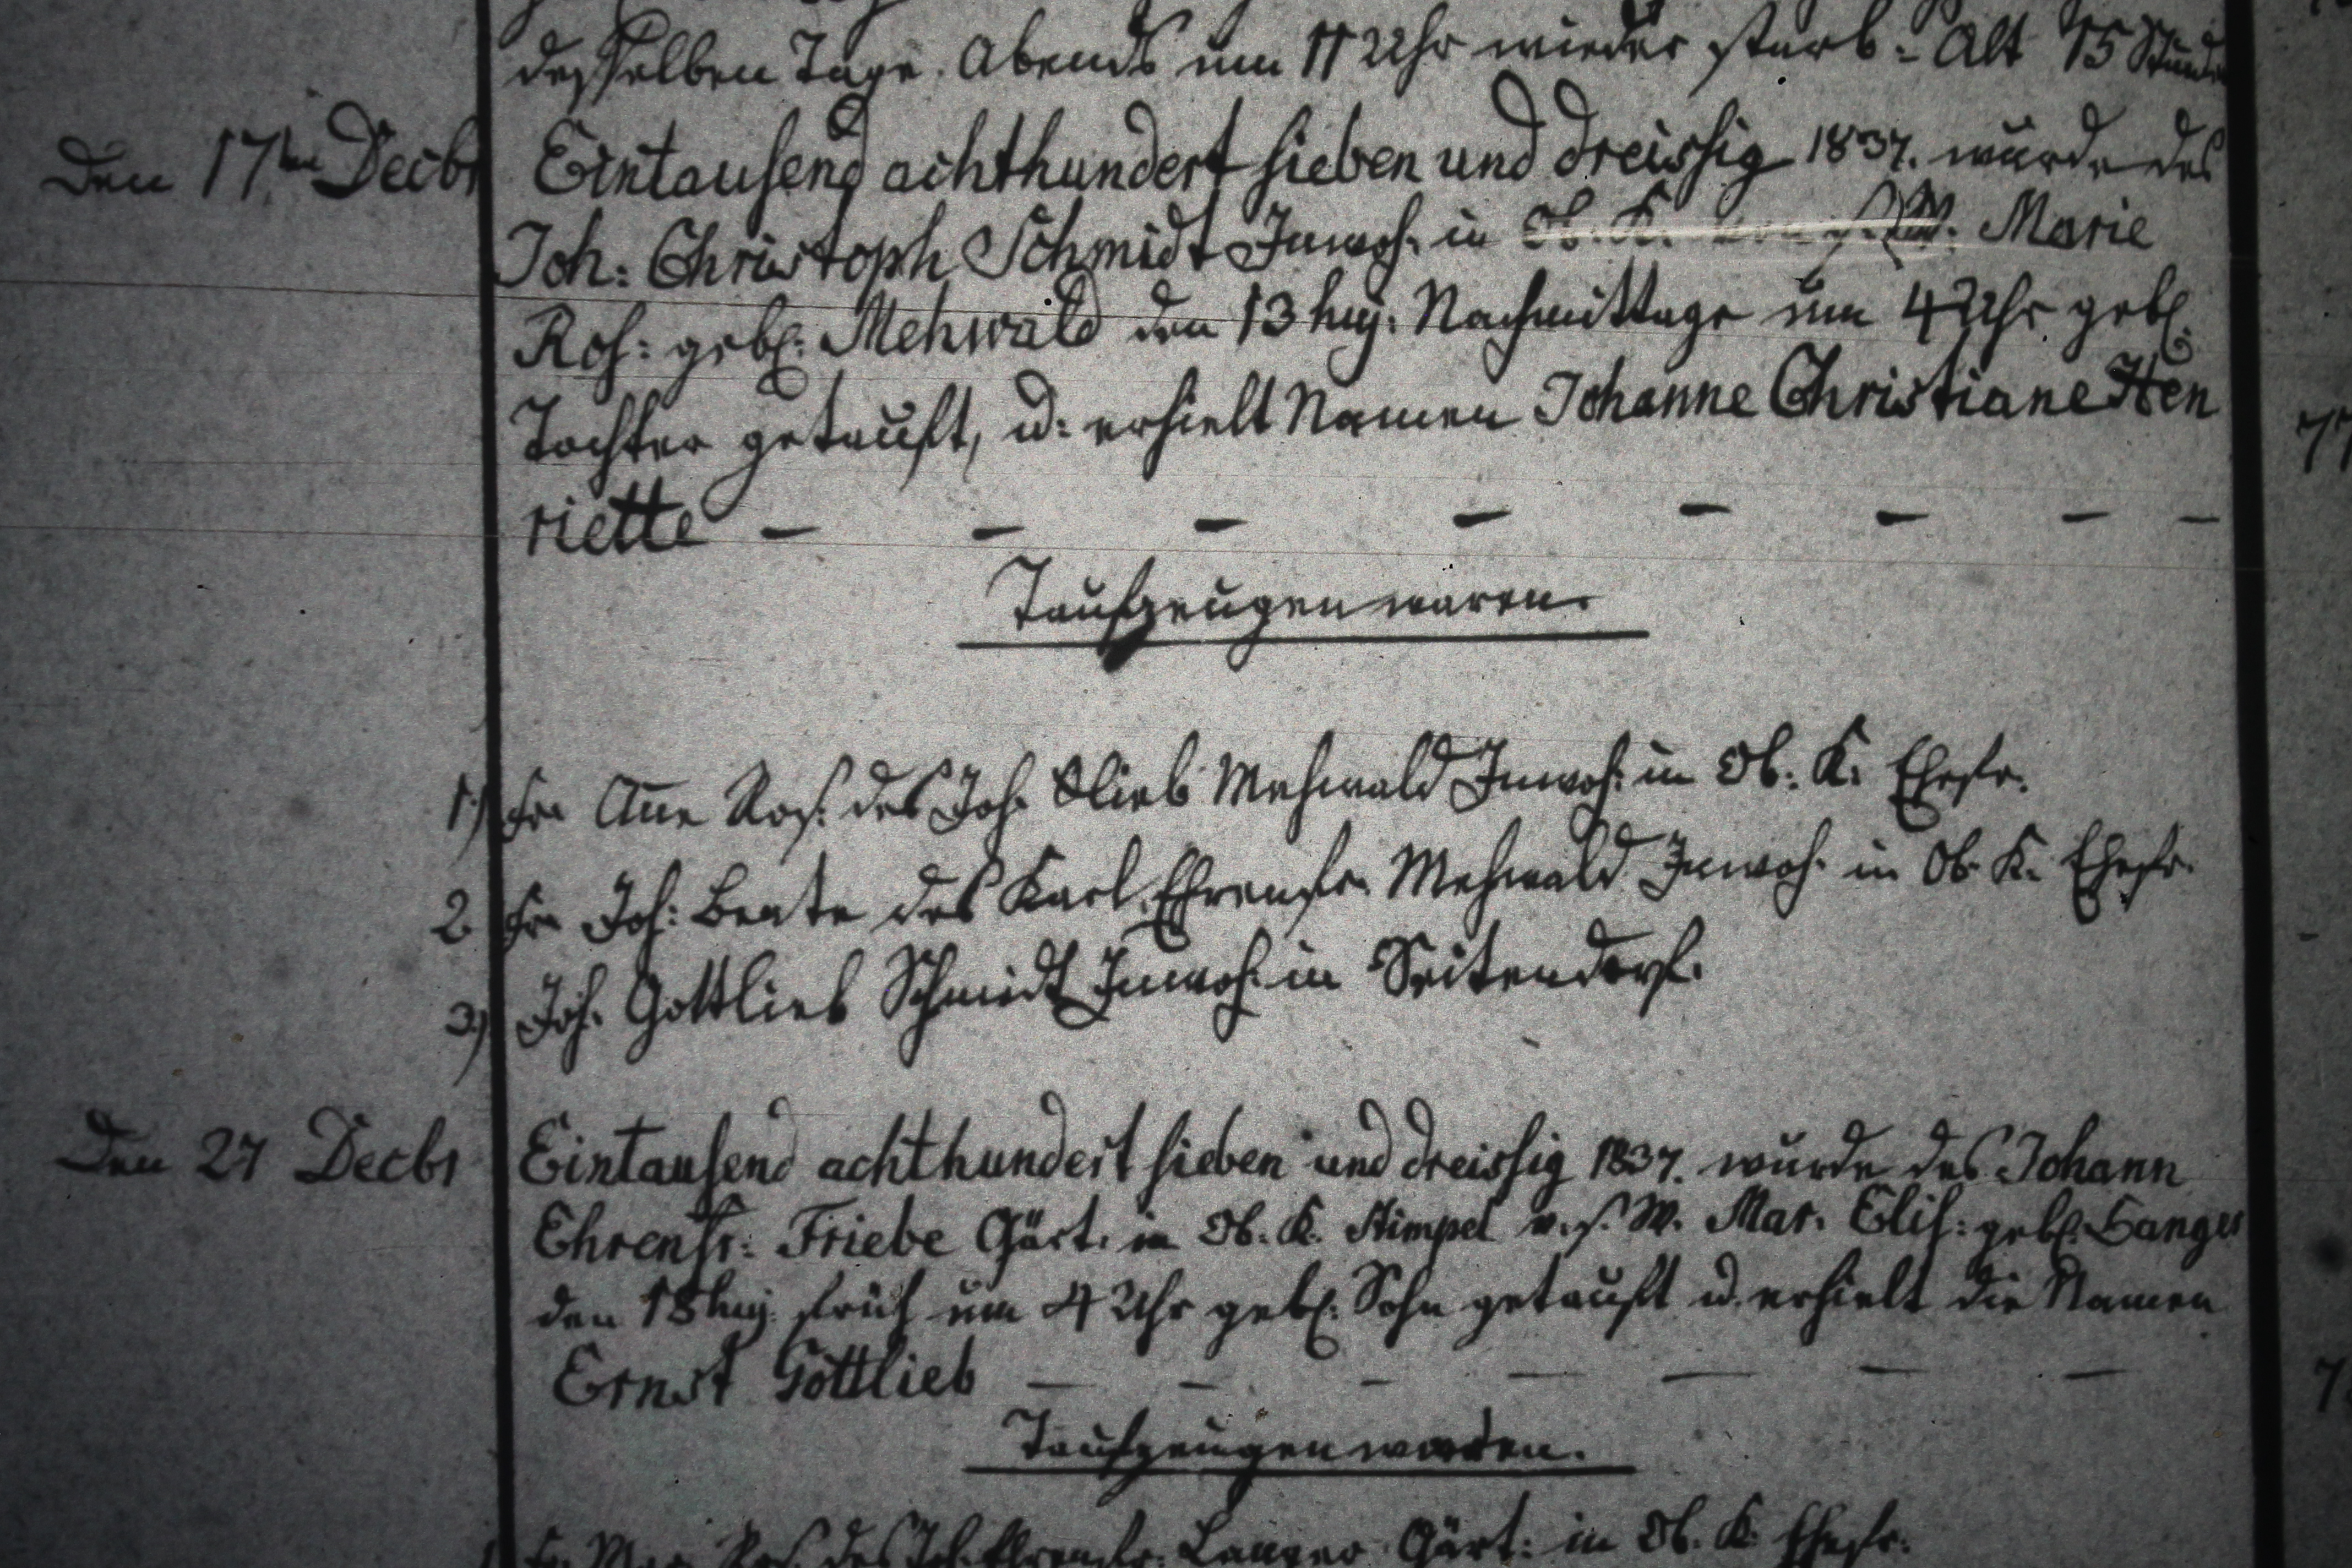 desselben Tage. Abends um 11 Uhr wieder starb. Alt 15 Stunden
Den 17ten Decbr Eintausend achthundert sieben und dreissig 1837. wurde des
Joh: Christoph Schmidt Inwoh. in Ob. K. W. Marie
Ros: gebl: Mehwald den 13 huj: Nachmittags um 4 Uhr gebl.
Tochter getauft, u: erhielt Namen Johanne Christiane Hen
riette — — — — — — — —
Taufzeugen waren.
1) Fr Añe Ros. des Joh. Glieb Mehwald Inwoh. in Ob. K. Ehefr.
2 Fr Joh: Beate des Karl Ehrenfr. Mehwald Inwoh. in Ob. K. Ehefr.
3) Joh. Gottlieb Schmidt Inwoh. in Seitendorf.
Den 27 Decbr Eintausend achthundert sieben und dreissig 1837. wurde des Johann
Ehrenfr: Friebe Gärt. in Ob. K. v. s. W. Mar. Elis: gebl. Langer
den 18 huj. früh um 4 Uhr gebl. Sohn getauft u. erhielt die Namen
Ernst Gottlieb — — — — — — —
Taufzeugen waren.
Fr. Mar. Ros. des Joh. Ehrenfr. Langer Gärt: in Ob. K. Ehefr.